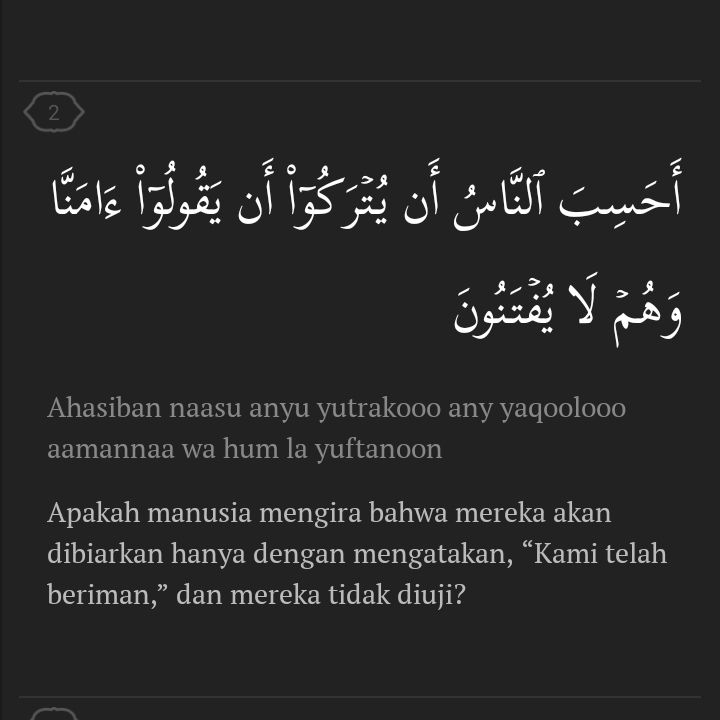 2
أَحَسِبَ ٱلنَّاسُ أَن يُتْرَكُوٓا۟ أَن يَقُولُوٓا۟ ءَامَنَّا
وَهُمْ لَا يُفْتَنُونَ
Ahasiban naasu anyu yutrakooo any yaqoolooo
aamannaa wa hum la yuftanoon
Apakah manusia mengira bahwa mereka akan
dibiarkan hanya dengan mengatakan, “Kami telah
beriman,” dan mereka tidak diuji?